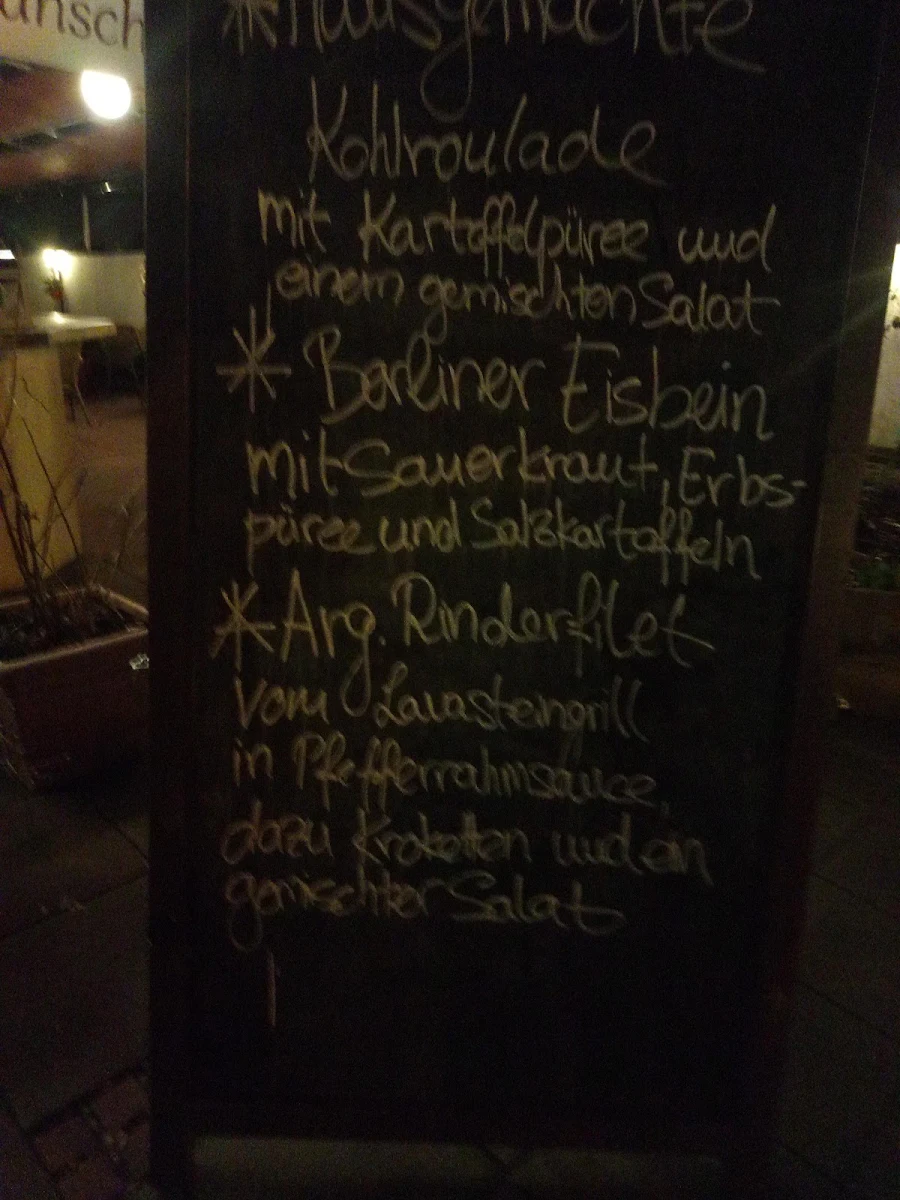 unsch
*Hausgemachte
Kohlroulade
mit Kartoffelpüree und
einem gemischten Salat
* Berliner Eisbein
mit Sauerkraut, Erbs-
püree und Salzkartoffeln
*Arg. Rinderfilet
vom Lavasteingrill
in Pfefferrahmsauce,
dazu Kroketten und ein
gemischter Salat